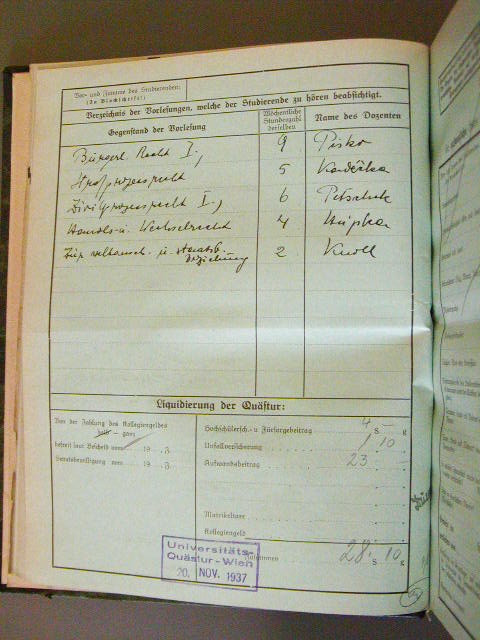 Vor- und Zuname des Studierenden:
(In Blockschrift!)
Verzeichnis der Vorlesungen, welche der Studierende zu hören beabsichtigt.
Gegenstand der Vorlesung
Wöchentliche Stundenzahl derselben
Name des Dozenten
Bürgerl. Recht I., 9 Pisko
Strafprozessrecht 5 Kadečka
Zivilprozessrecht I., 6 Petschek
Handels- u. Wechselrecht 4 Hupka
u. staatsb. 2 Knoll
Erziehung
Liquidierung der Quästur:
Von der Zahlung des Kollegiengeldes
halb – ganz
befreit laut Bescheid vom 19 Z.
Senatsbewilligung vom 19 Z.
Hochschülersch.- u. Fürsorgebeitrag 4 S — g
Unfallversicherung 1 10
Aufwandsbeitrag 23
Matrikeltaxe
Kollegiengeld
Zusammen 28 S 10 g
Universitäts-
Quästur-Wien
20. NOV. 1937